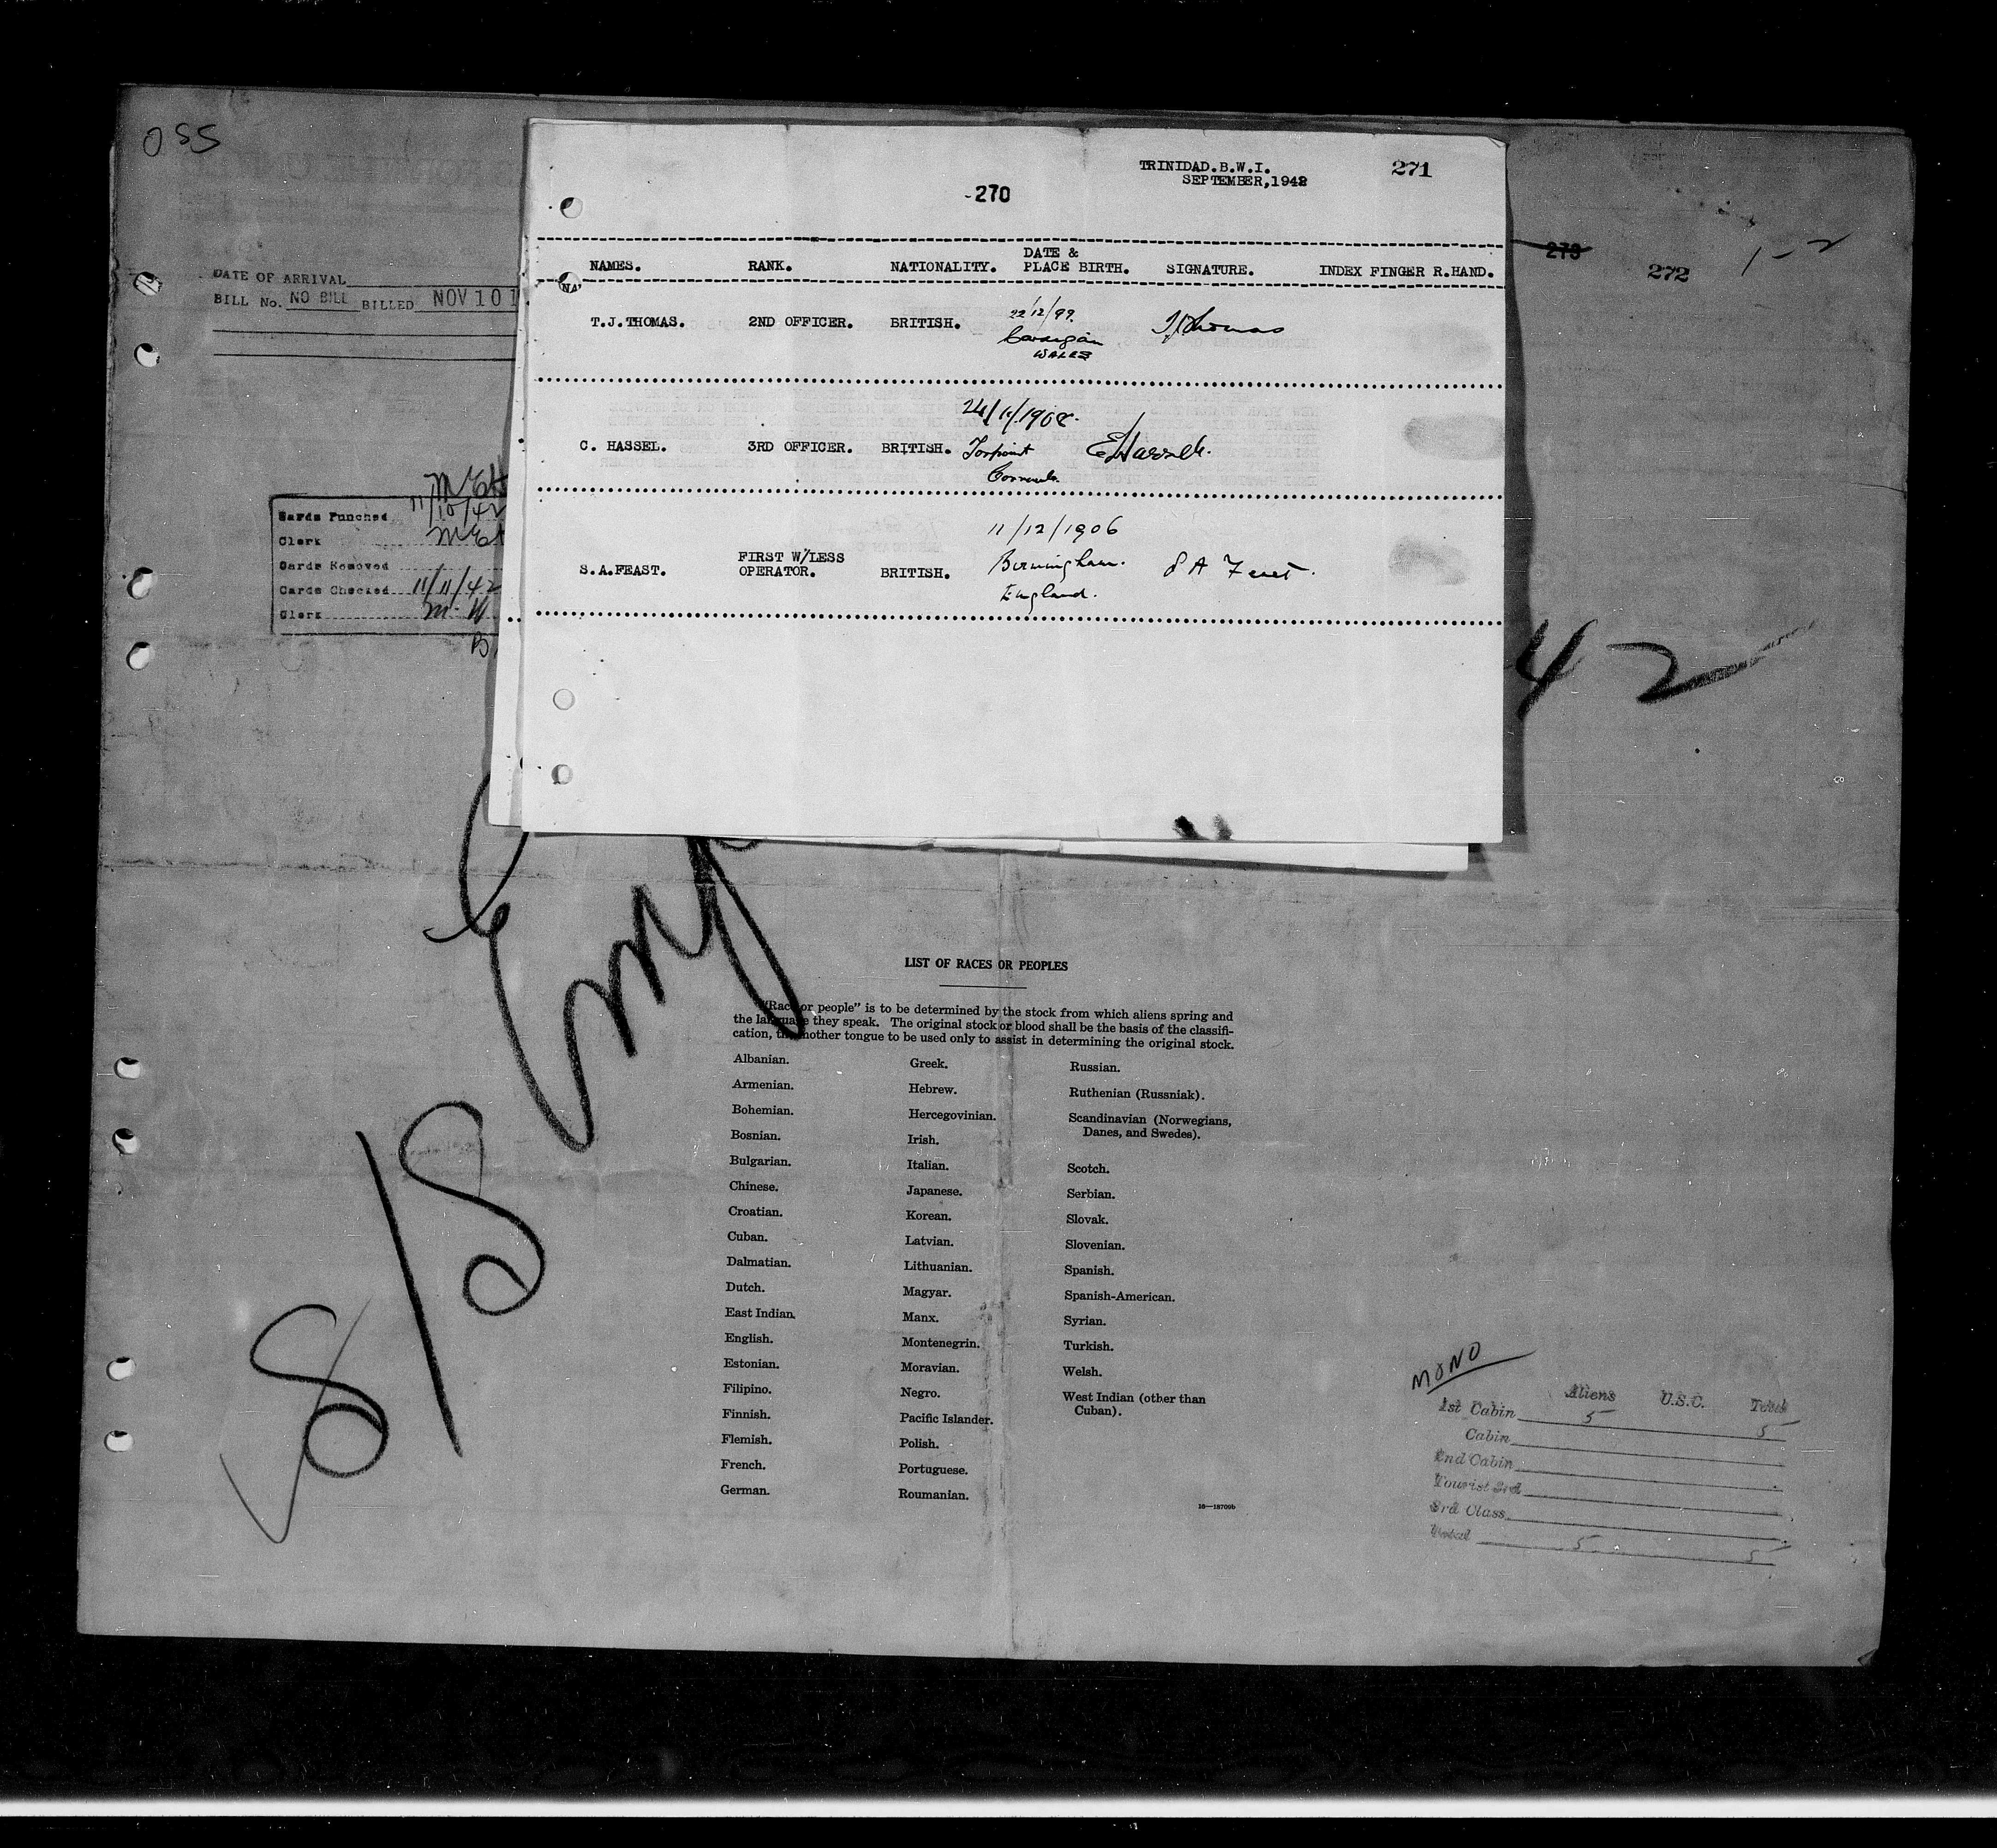 OSS
DATE OF ARRIVAL
BILL No. NO BILL BILLED NOV 10 1
Cards Punched 11/10/42
Clerk
Cards Removed
Cards Checked 11/11/42
Clerk
TRINIDAD.B.W.I. 271
SEPTEMBER,1942
-270
NAMES. RANK. NATIONALITY. DATE & PLACE BIRTH. SIGNATURE. INDEX FINGER R.HAND.
T.J.THOMAS. 2ND OFFICER. BRITISH. 22/12/99. TJThomas
Cardigan
WALES
C. HASSEL. 3RD OFFICER. BRITISH. Torpoint
Cornwall.
S.A.FEAST. FIRST W/LESS OPERATOR. BRITISH. 11/12/1906
Birmingham. S A Feast.
England.
273
272
1-2
42
S/S Emp
LIST OF RACES OR PEOPLES
"Race or people" is to be determined by the stock from which aliens spring and
the language they speak. The original stock or blood shall be the basis of the classifi-
cation, the mother tongue to be used only to assist in determining the original stock.
Albanian.
Armenian.
Bohemian.
Bosnian.
Bulgarian.
Chinese.
Croatian.
Cuban.
Dalmatian.
Dutch.
East Indian.
English.
Estonian.
Filipino.
Finnish.
Flemish.
French.
German.
Greek.
Hebrew.
Hercegovinian.
Irish.
Italian.
Japanese.
Korean.
Latvian.
Lithuanian.
Magyar.
Manx.
Montenegrin.
Moravian.
Negro.
Pacific Islander.
Polish.
Portuguese.
Roumanian.
Russian.
Ruthenian (Russniak).
Scandinavian (Norwegians,
Danes, and Swedes).
Scotch.
Serbian.
Slovak.
Slovenian.
Spanish.
Spanish-American.
Syrian.
Turkish.
Welsh.
West Indian (other than
Cuban).
16—18709b
MONO
Aliens U.S.C. Total
1st Cabin 5 5
Cabin
2nd Cabin
Tourist 3rd
3rd Class
Total 5 5